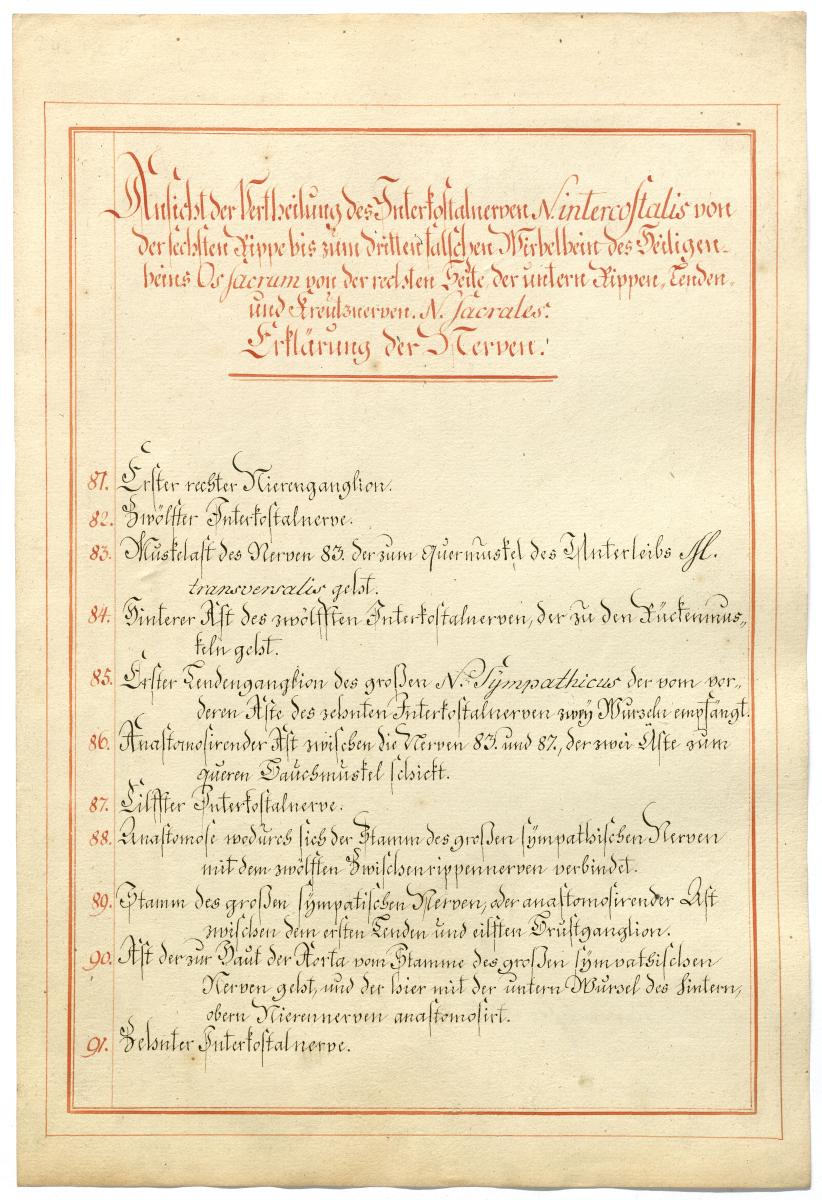 Ansicht der Vertheilung des Interkostalnerven N. intercostalis von
der sechsten Rippe bis zum dritten falschen Wirbelbein des Heiligen-
beins Os sacrum von der rechten Seite, der untern Rippen, Lenden-
und Kreutznerven. N. sacrales.
Erklärung der Nerven.
81. Erster rechter Nierenganglion.
82. Zwölfter Interkostalnerve.
83. Muskelast des Nerven 83. der zum quermuskel des Unterleibs M.
transversalis geht.
84. Hinterer Ast des zwölfften Interkostalnerven, der zu den Rückenmus-
keln geht.
85. Erster Lendenganglion des großen N. Sympathicus der vom vor-
deren Aste des zehnten Interkostalnerven zwey Wurzeln empfängt.
86. Anastomosirender Ast zwischen die Nerven 83. und 87., der zwei Äste zum
queren Bauchmuskel schickt.
87. Eilffter Interkostalnerve.
88. Anastomose wodurch sich der Stamm des großen sympathischen Nerven
mit dem zwölften Zwischenrippennerven verbindet.
89. Stamm des großen sympatischen Nerven, oder anastomosirender Ast
zwischen dem ersten Lenden und eilften Brustganglion.
90. Ast der zur Haut der Aorta vom Stamme des großen sympathischen
Nerven geht, und der hier mit der untern Wurzel des hintern,
obern Nierennerven anastomosirt.
91. Zehnter Interkostalnerve.